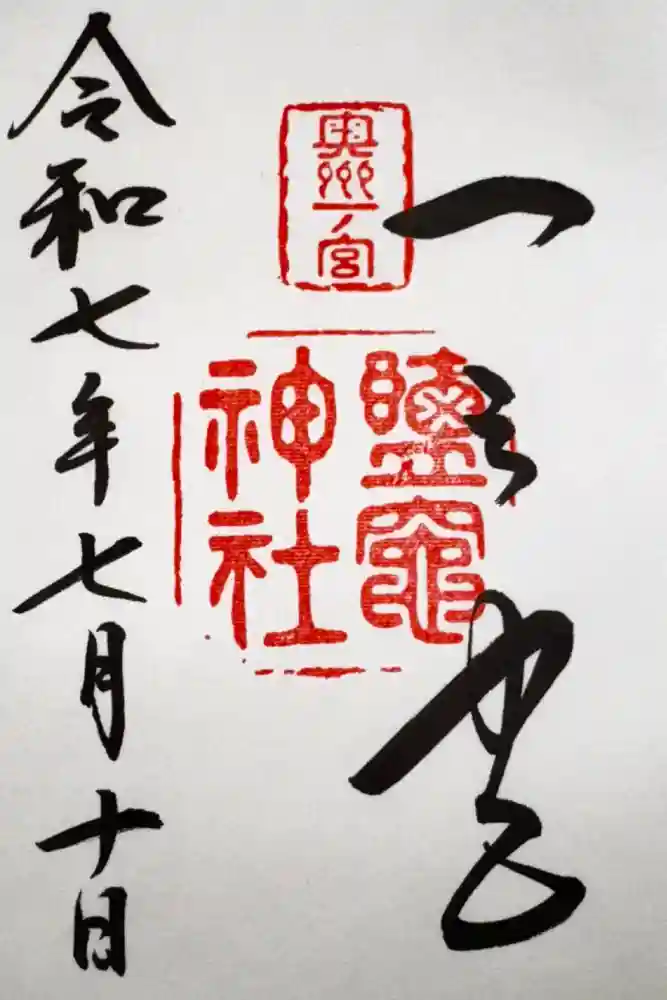 一之宮
奥州
一ノ宮
鹽竈
神社
令和七年七月十日